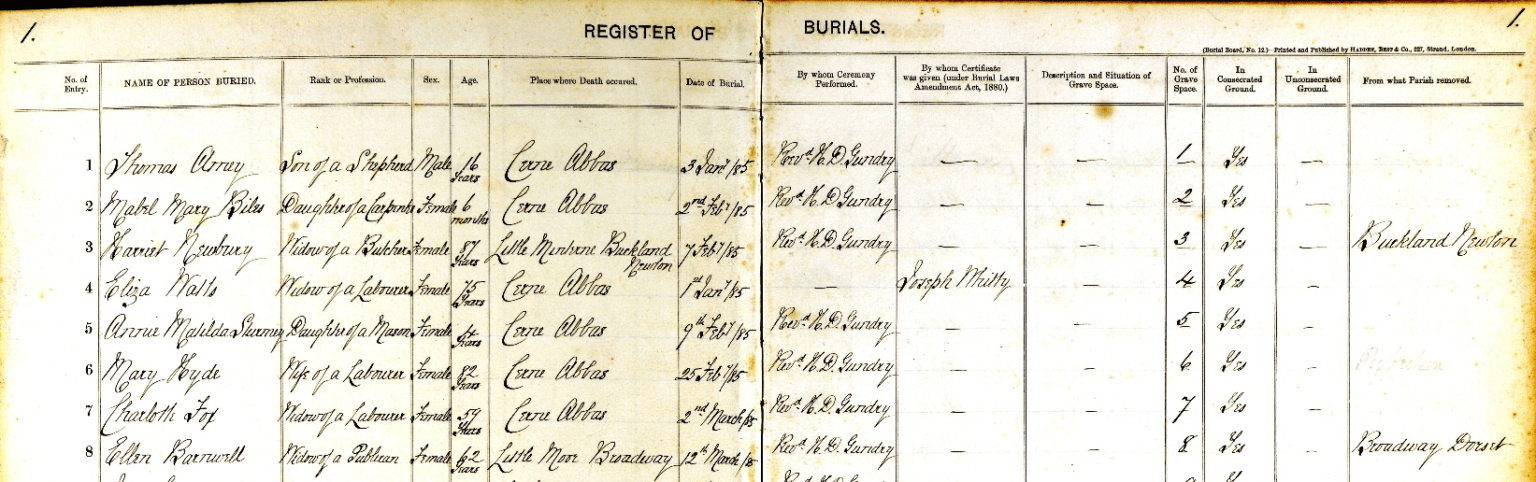 1. REGISTER OF BURIALS. 1.
(Burial Board, No. 12.)—Printed and Published by HADDEN, BEST & Co., 227, Strand, London.
No. of Entry. NAME OF PERSON BURIED. Rank or Profession. Sex. Age. Place where Death occured. Date of Burial. By whom Ceremony Performed. By whom Certificate was given (under Burial Laws Amendment Act, 1880.) Description and Situation of Grave Space. No. of Grave Space. In Consecrated Ground. In Unconsecrated Ground. From what Parish removed.
1 Thomas Amey Son of a Shepherd Male 16 Years Cerne Abbas 3 Jany/85 Revd H. D. Gundry — — 1 Yes —
2 Mabel Mary Biles Daughter of a Carpenter Female 6 months Cerne Abbas 2nd Feby/85 Revd H. D. Gundry — — 2 Yes —
3 Harriet Newbury Widow of a Butcher Female 87 Years Little Minterne Buckland Newton 7 Feby/85 Revd H. D. Gundry — — 3 Yes — Buckland Newton
4 Eliza Watts Widow of a Labourer Female 75 Years Cerne Abbas 1st Jany/85 — Joseph Whitty — 4 Yes —
5 Annie Matilda Daughter of a Mason Female 4 Years Cerne Abbas 9th Feby/85 Revd H. D. Gundry — — 5 Yes —
6 Mary Hyde Wife of a Labourer Female 82 Years Cerne Abbas 25 Feby/85 Revd H. D. Gundry — — 6 Yes —
7 Charlotte Fox Widow of a Labourer Female 59 Years Cerne Abbas 2nd March/85 Revd H. D. Gundry — — 7 Yes —
8 Ellen Barnwell Widow of a Publican Female 62 Years Little Moor Broadway 12th March/85 Revd H. D. Gundry — — 8 Yes — Broadway Dorset